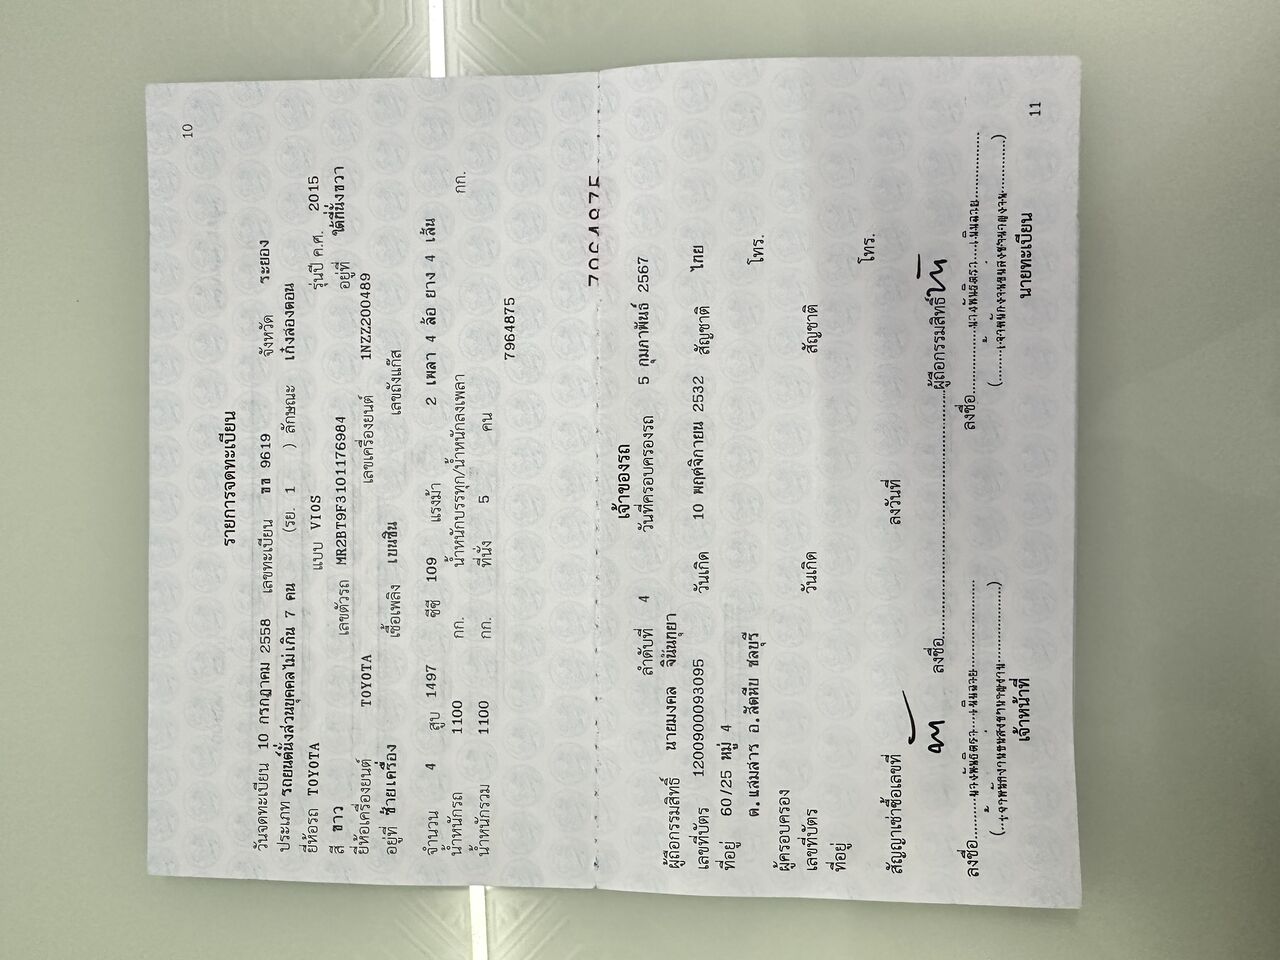 10
รายการจดทะเบียน
วันจดทะเบียน 10 กรกฎาคม 2558 เลขทะเบียน ขอ 9619 จังหวัด ระยอง
ประเภท รถยนต์นั่งส่วนบุคคลไม่เกิน 7 คน (รย. 1 ) ลักษณะ เก๋งสองตอน
ยี่ห้อรถ TOYOTA แบบ VIOS รุ่นปี ค.ศ. 2015
สี ขาว เลขตัวรถ MR2BT9F3101176984 อยู่ที่ ใต้ที่นั่งขวา
ยี่ห้อเครื่องยนต์ TOYOTA เลขเครื่องยนต์ 1NZZ200489
อยู่ที่ ซ้ายเครื่อง เชื้อเพลิง เบนซิน เลขถังแก๊ส
จำนวน 4 สูบ 1497 ซีซี 109 แรงม้า 2 เพลา 4 ล้อ ยาง 4 เส้น
น้ำหนักรถ 1100 กก. น้ำหนักบรรทุก/น้ำหนักลงเพลา กก.
น้ำหนักรวม 1100 กก. ที่นั่ง 5 คน
7964875
7964875
เจ้าของรถ
ลำดับที่ 4 วันที่ครอบครองรถ 5 กุมภาพันธ์ 2567
ผู้ถือกรรมสิทธิ์ นายมงคล จินันทุยา
เลขที่บัตร 1200900093095 วันเกิด 10 พฤศจิกายน 2532 สัญชาติ ไทย
ที่อยู่ 60/25 หมู่ 4
ต.แสมสาร อ.สัตหีบ ชลบุรี โทร.
ผู้ครอบครอง
เลขที่บัตร วันเกิด สัญชาติ
ที่อยู่
โทร.
สัญญาเช่าซื้อเลขที่ ลงวันที่
ลงชื่อ ผู้ถือกรรมสิทธิ์
ลงชื่อ ลงชื่อ
(เจ้าพนักงานขนส่งชำนาญงาน) (เจ้าพนักงานขนส่งชำนาญงาน)
เจ้าหน้าที่ นายทะเบียน
11